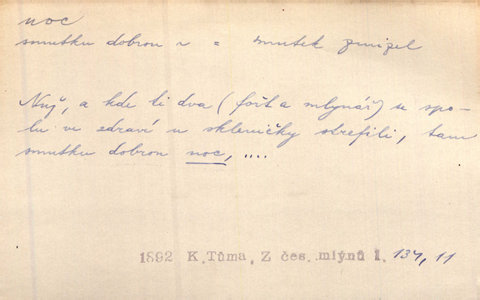 noc
smutku dobrou n = smutek zmizel
Nuž, a kde li dva (fořt a mlynář) se spo-
lu ve zdraví u skleničky střefili, tam
smutku dobrou noc, ....
1892 K. Tůma, Z čes. mlýnů I. 134, 11